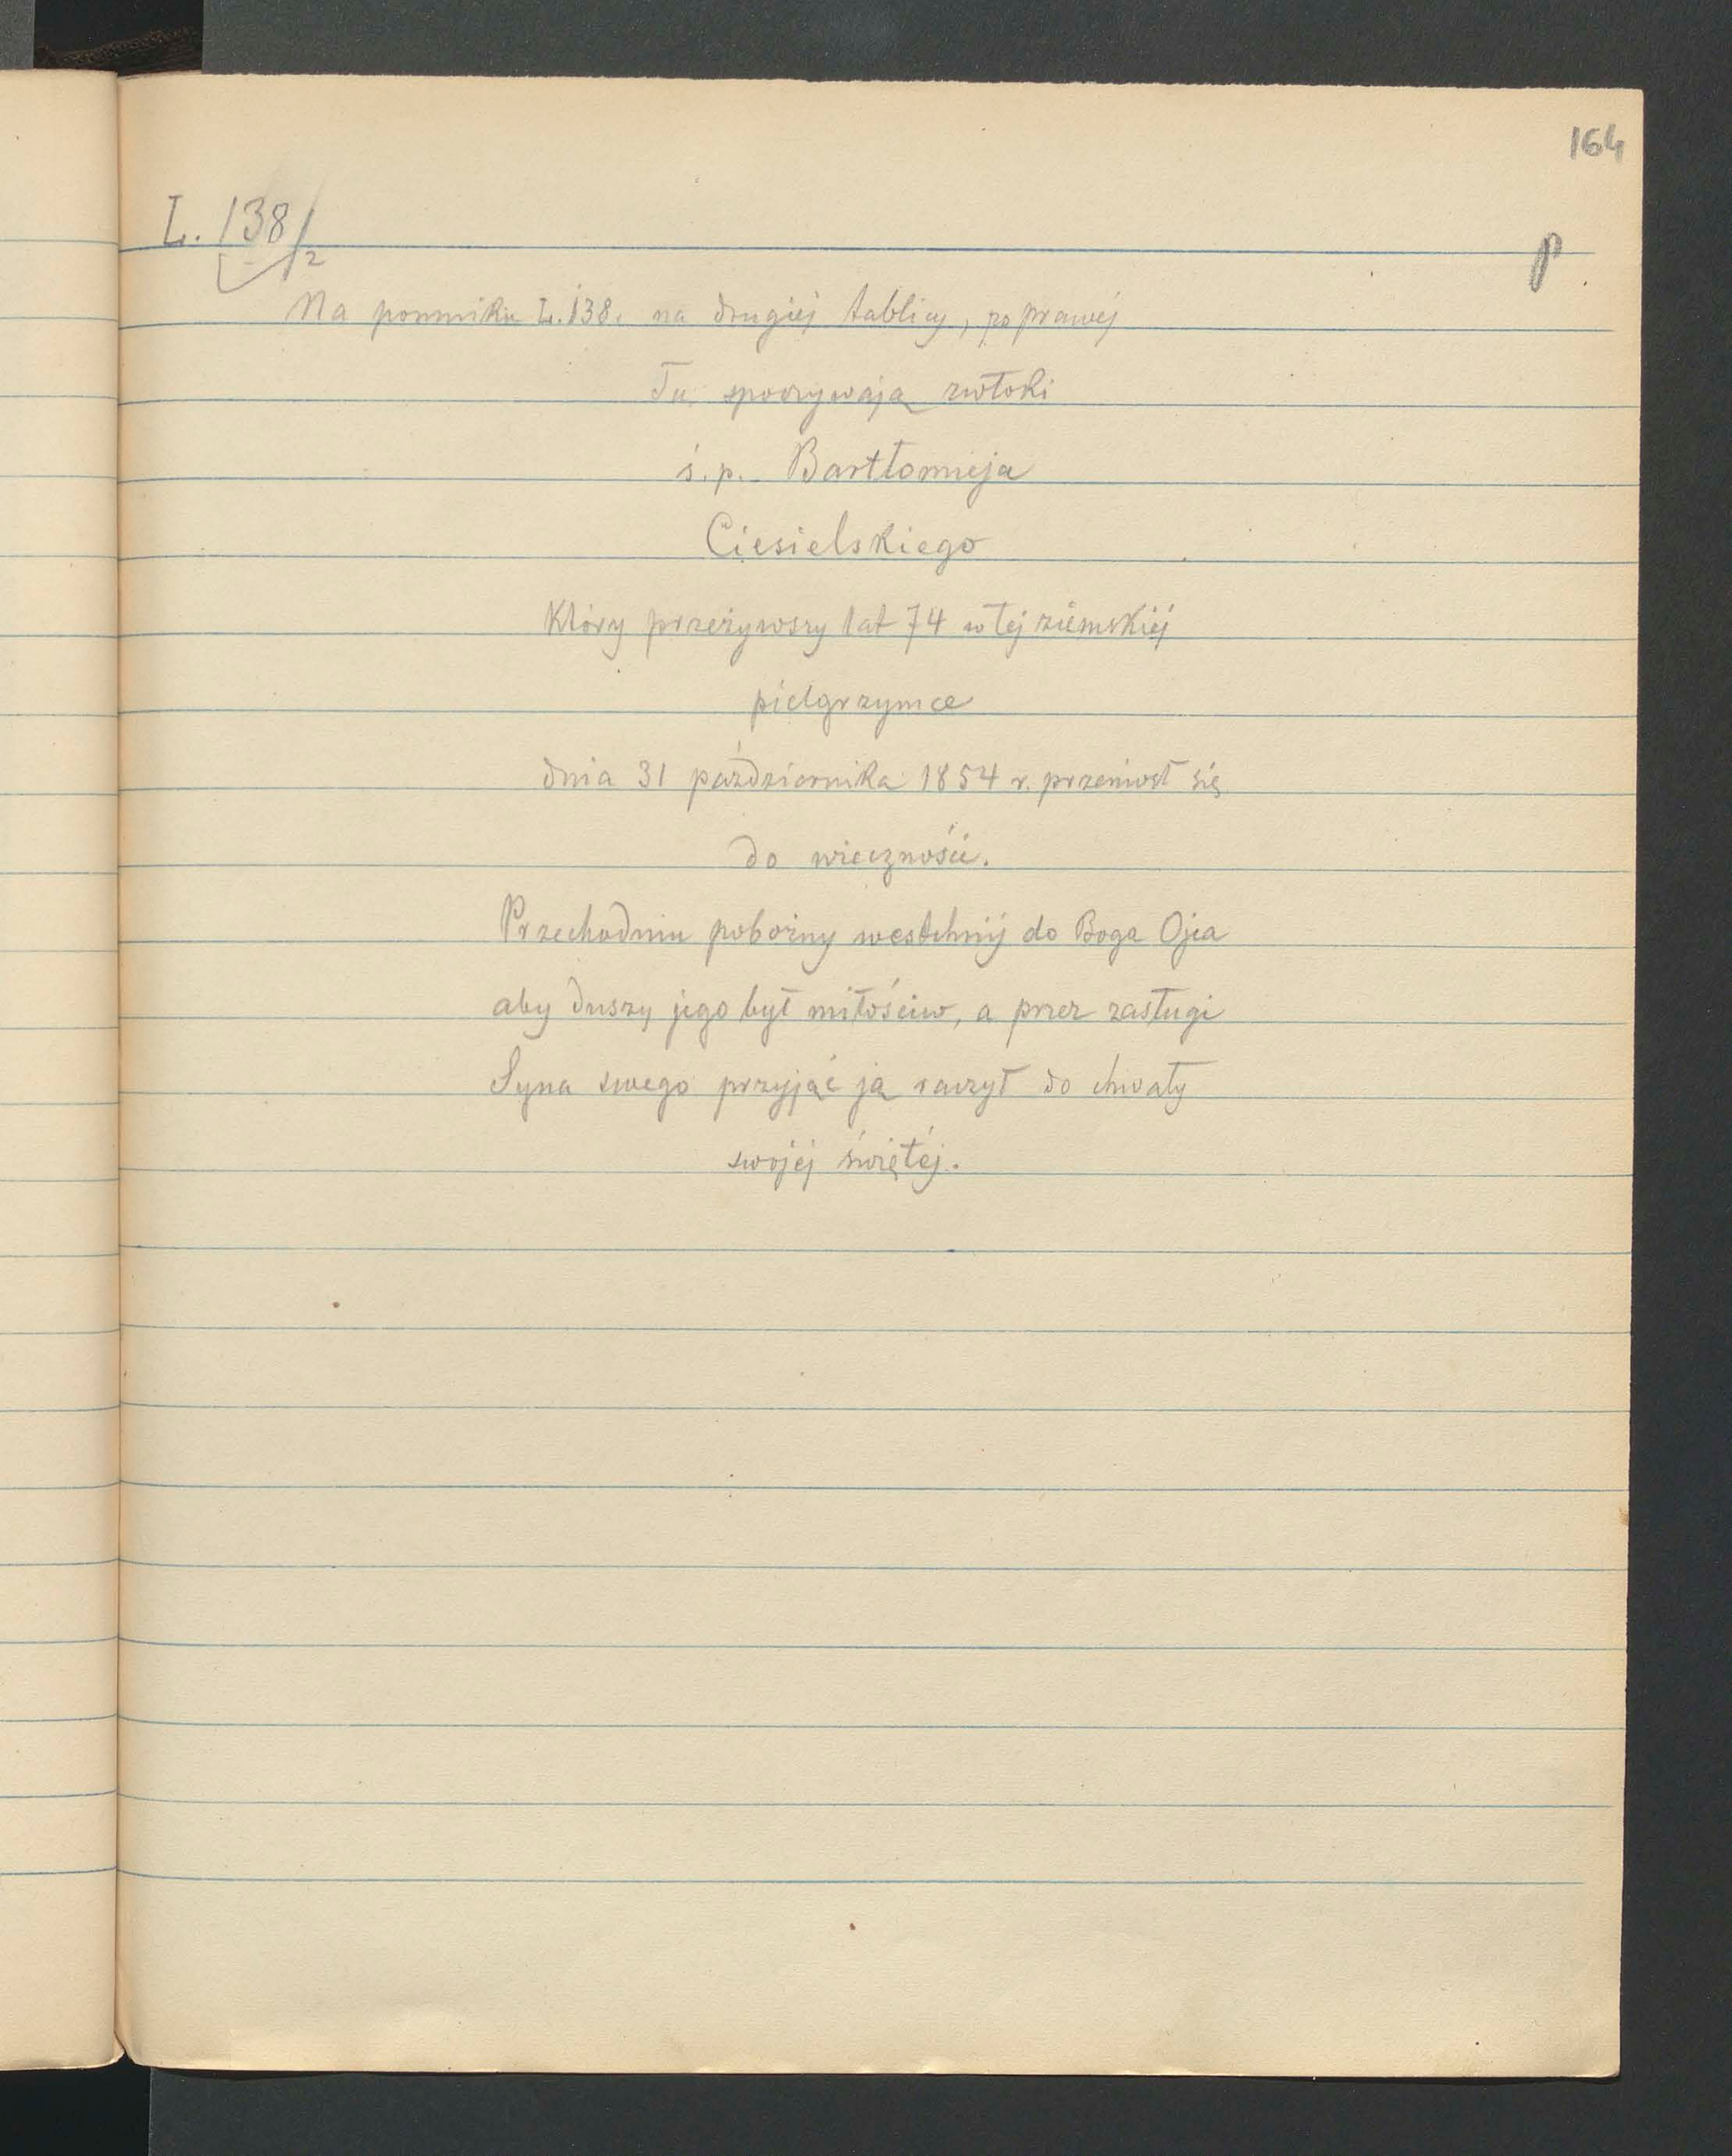 164
L. 138/2
p
Na pomniku L. 138. na drugiéj tablicy, po prawéj
Tu spoczywają zwłoki
ś. p. Bartłomieja
Ciesielskiego
Który przeżywszy lat 74 w téj ziemskiéj
pielgrzymce
dnia 31 października 1854 r. przeniósł się
do wieczności.
Przechodniu pobożny westchnij do Boga Ojca
aby duszy jego był miłościw, a przez zasługi
Syna swego przyjąć ją raczył do chwały
swojéj świętéj.